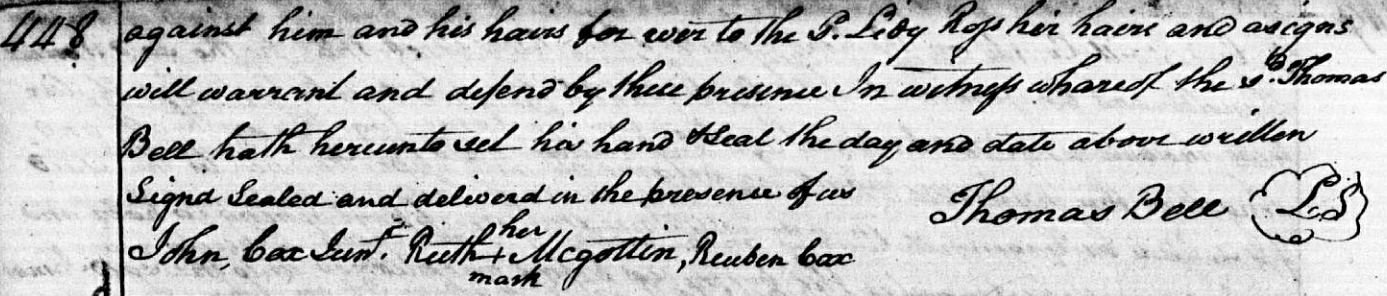 448 against him and his hairs for ever to the Sd. Ledy Ross her hairs and asigns
will warrant and defend by these presence In witness whareof the sd. Thomas
Bell hath hereunto set his hand & Seal the day and date above written
Signd Sealed and deliverd in the presence of us
Thomas Bell LS
her
John Cox Junr. Ruth + Mcgottin, Reuben Cox
mark